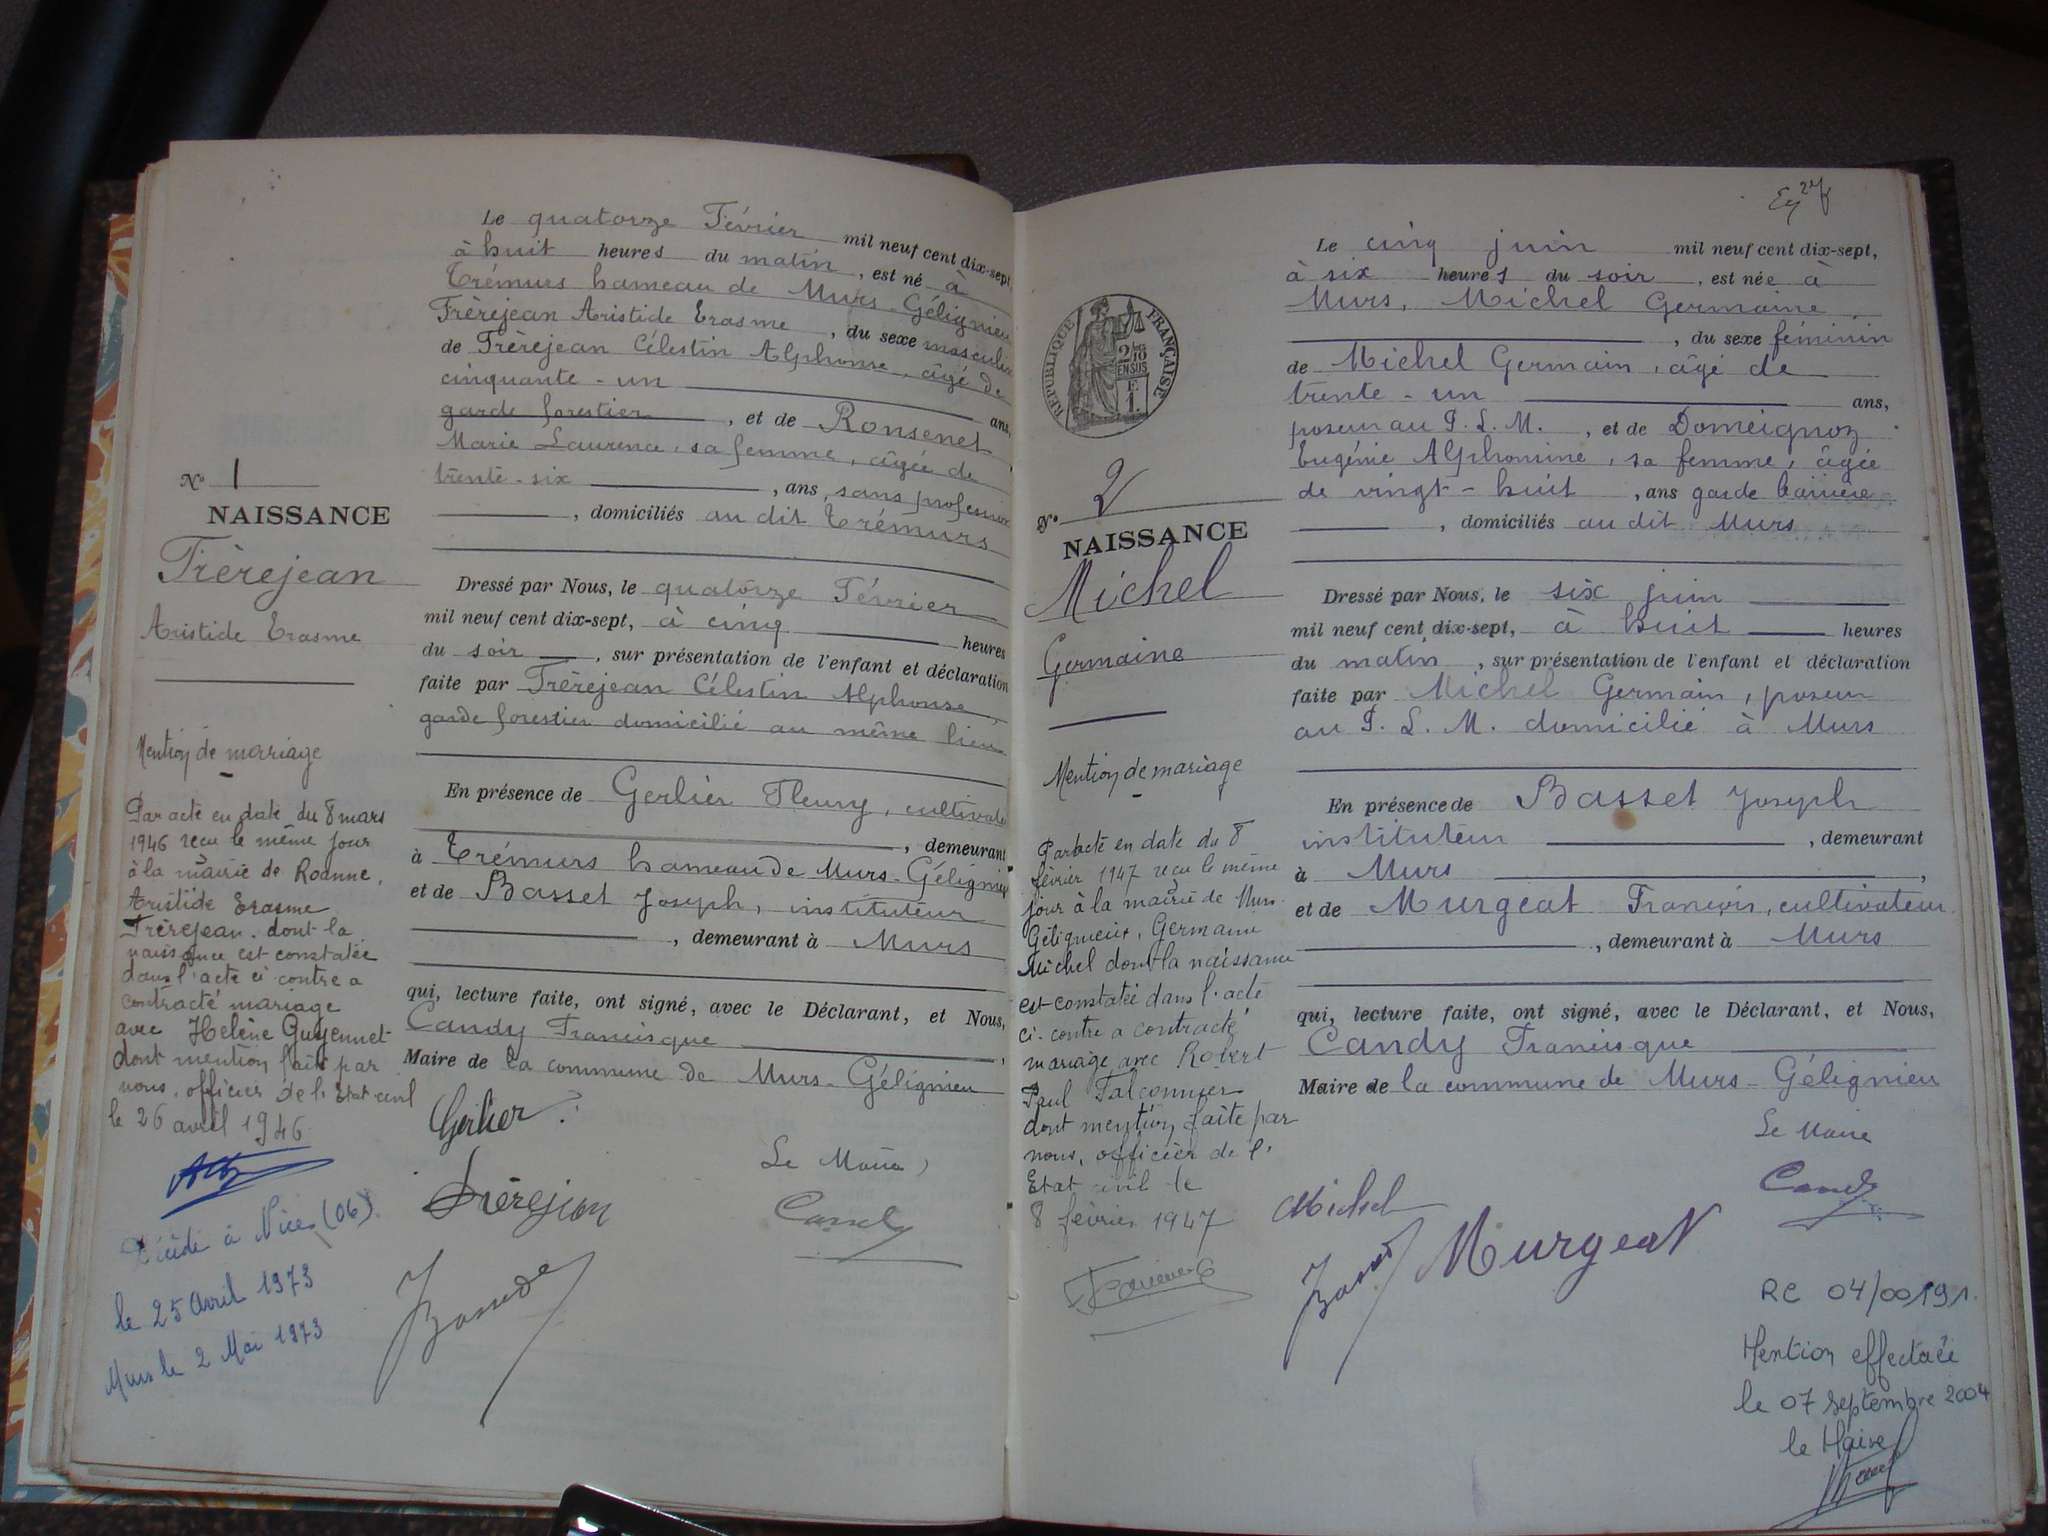 Le quatorze Février mil neuf cent dix-sept,
à huit heures du matin, est né à
Trémurs hameau de Murs-Gélignieu
Frèrejean Aristide Erasme, du sexe masculin
de Frèrejean Célestin Alphonse, âgé de
cinquante-un ans,
garde forestier, et de Ronsenet
Marie Laurence, sa femme, âgée de
trente-six, ans, sans profession
, domiciliés au dit Trémurs
N° 1
NAISSANCE
Frèrejean
Aristide Erasme
Dressé par Nous, le quatorze Février
mil neuf cent dix-sept, à cinq heures
du soir, sur présentation de l'enfant et déclaration
faite par Frèrejean Célestin Alphonse,
garde forestier domicilié au même lieu
En présence de Gerlier Fleury, cultivateur
, demeurant
à Trémurs hameau de Murs-Gélignieu
et de Basset Joseph, instituteur
, demeurant à Murs
qui, lecture faite, ont signé, avec le Déclarant, et Nous,
Candy Francisque,
Maire de la commune de Murs-Gélignieu
Gerlier
Le Maire,
Frèrejean
Candy
Basset
Mention de mariage
Par acte en date du 8 mars
1946 reçu le même jour
à la mairie de Roanne,
Aristide Erasme
Frèrejean. dont la
naissance est constatée
dans l'acte ci contre a
contracté mariage
avec Helène Guyennet
dont mention faite par
nous, officier de l'Etat civil
le 26 avril 1946
Décédé à Nice (06)
le 25 avril 1973
Murs le 2 Mai 1973
Le cinq juin mil neuf cent dix-sept,
à six heures du soir, est née à
Murs, Michel Germaine
, du sexe féminin
de Michel Germain, âgé de
trente-un ans,
poseur au P. L. M., et de Domeignoz
Eugénie Alphonsine, sa femme, âgée
de vingt-huit, ans garde barrière
, domiciliés au dit Murs
RÉPUBLIQUE FRANÇAISE
2/10
EN SUS
N° 2
NAISSANCE
Michel
Germaine
Dressé par Nous, le six juin
mil neuf cent dix-sept, à huit heures
du matin, sur présentation de l'enfant et déclaration
faite par Michel Germain, poseur
au P. L. M. domicilié à Murs
En présence de Basset Joseph
instituteur, demeurant
à Murs,
et de Murgeat François, cultivateur
, demeurant à Murs
qui, lecture faite, ont signé, avec le Déclarant, et Nous,
Candy Francisque
Maire de la commune de Murs-Gélignieu
Le Maire
Candy
Michel
Basset
Murgeat
Mention de mariage
Par acte en date du 8
février 1947 reçu le même
jour à la mairie de Murs
Gélignieux, Germaine
Michel dont la naissance
est constatée dans l'acte
ci-contre a contracté
mariage avec Robert
Paul Falconnier
dont mention faite par
nous, officier de l'
Etat civil le
8 février 1947
RC 04/00191.
Mention effectuée
le 07 septembre 2004
le Maire